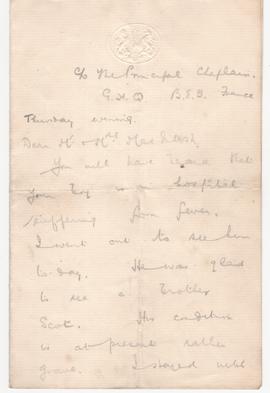 c/o The Principal Chaplain.
G.H.Q B.E.F. France
Thursday evening.
Dear Mr & Mrs MacIntosh,
You will have heard that
your boy is in hospital
suffering from fever.
I went out to see him
to-day. He was glad
to see a brother
Scot. His condition
is at present rather
grave. I stayed with